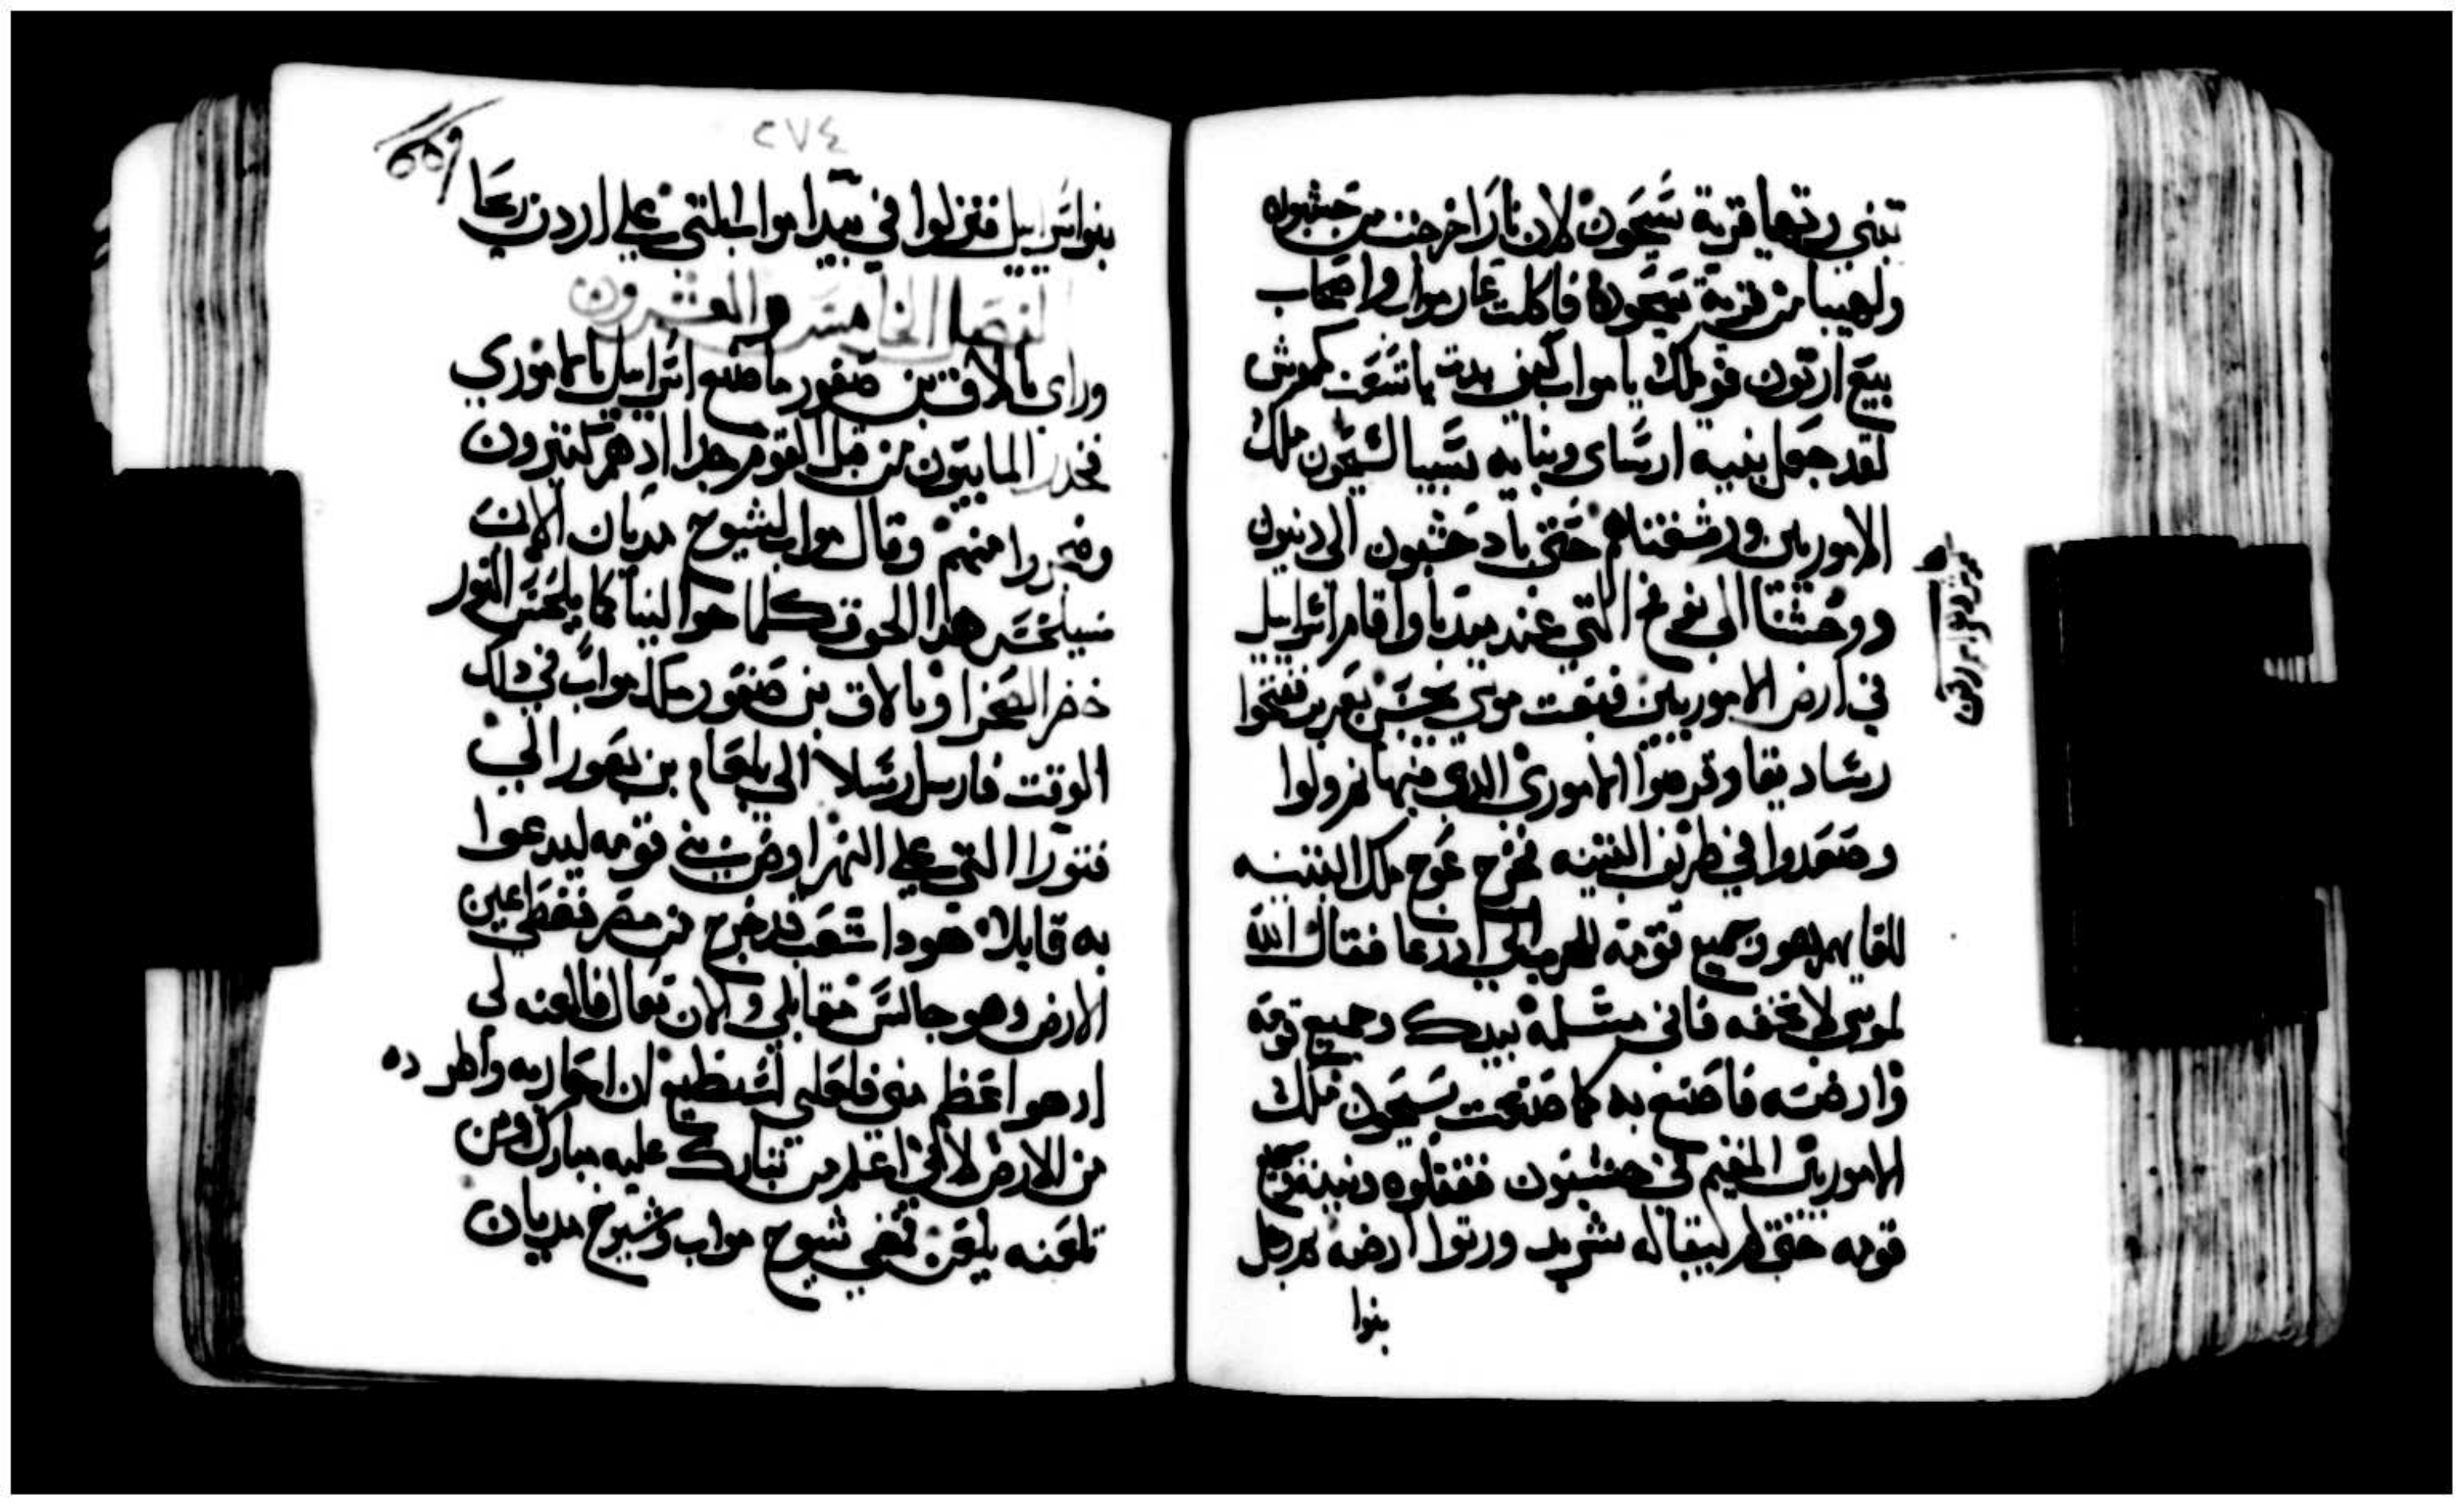 تبني وتهيا قرية سيحون لان نارا خرجت من حشبون
ولهيبا من قرية سيحون فاكلت عار مواب واصحاب
بيع ارنون فويلك يا مواب كيف بدت يا شعب كموش
لقد جعل بنيه ارساي وبناته سبيا لسيحون ملك
الاموريين ورشقناهم حتي باد حشبون الي ديبون
ووحشنا الي نفح التي عند ميدبا واقام اسراييل
في ارض الاموريين فبعت موسي بجس يعزير ففتحوا
رساديقها وقرضوا الاموري الدي فيها تم ولوا
وصعدوا في طريق البتنيه فخرج عوج ملك البتنيه
للقايهم هو وجميع قومه للحرب الي ادرعا فقال الله
لموسي لا تخفه فاني مسلمه بيدك وجميع قومه
وارضه فاصنع به كما صنعت بسيحون ملك
الاموريين المقيم في حشبون فقتلوه وبنيه وجميع
قومه حتي لم يبقا له شريد وورتوا ارضه تم رحل
بنوا
٢٧٤
بنوا اسراييل فنزلوا في بيدا مواب التي علي اردن ريحا
الفصل الخامس والعشرون
وراي بالاق بن صفور ما صنع اسراييل بالاموري
فحدر المابيون من قبل القوم جدا اد هم كتيرون
وضجروا منهم وقال مواب لشيوخ مديان الان
سيلحس هدا الجوق كلما حوالينا كما يلحس التور
خضر الصحرا وبالاق بن صفور ملك مواب في دلك
الوقت فارسل رسلا الي بلعام بن بعور الي
فتورا التي علي النهر ارض بني قومه ليدعوا
به قايلا هودا شعب قد خرج من مصر فغطي عين
الارض وهو جالس مقابلي والان تعال فالعنه لي
اد هو اعظم مني فلعلي استطيع ان احاربه واطرده
من الارض لاني اعلم من تبارك عليه مبارك ومن
تلعنه يلعن فمضي شيوخ مواب وشيوخ مديان